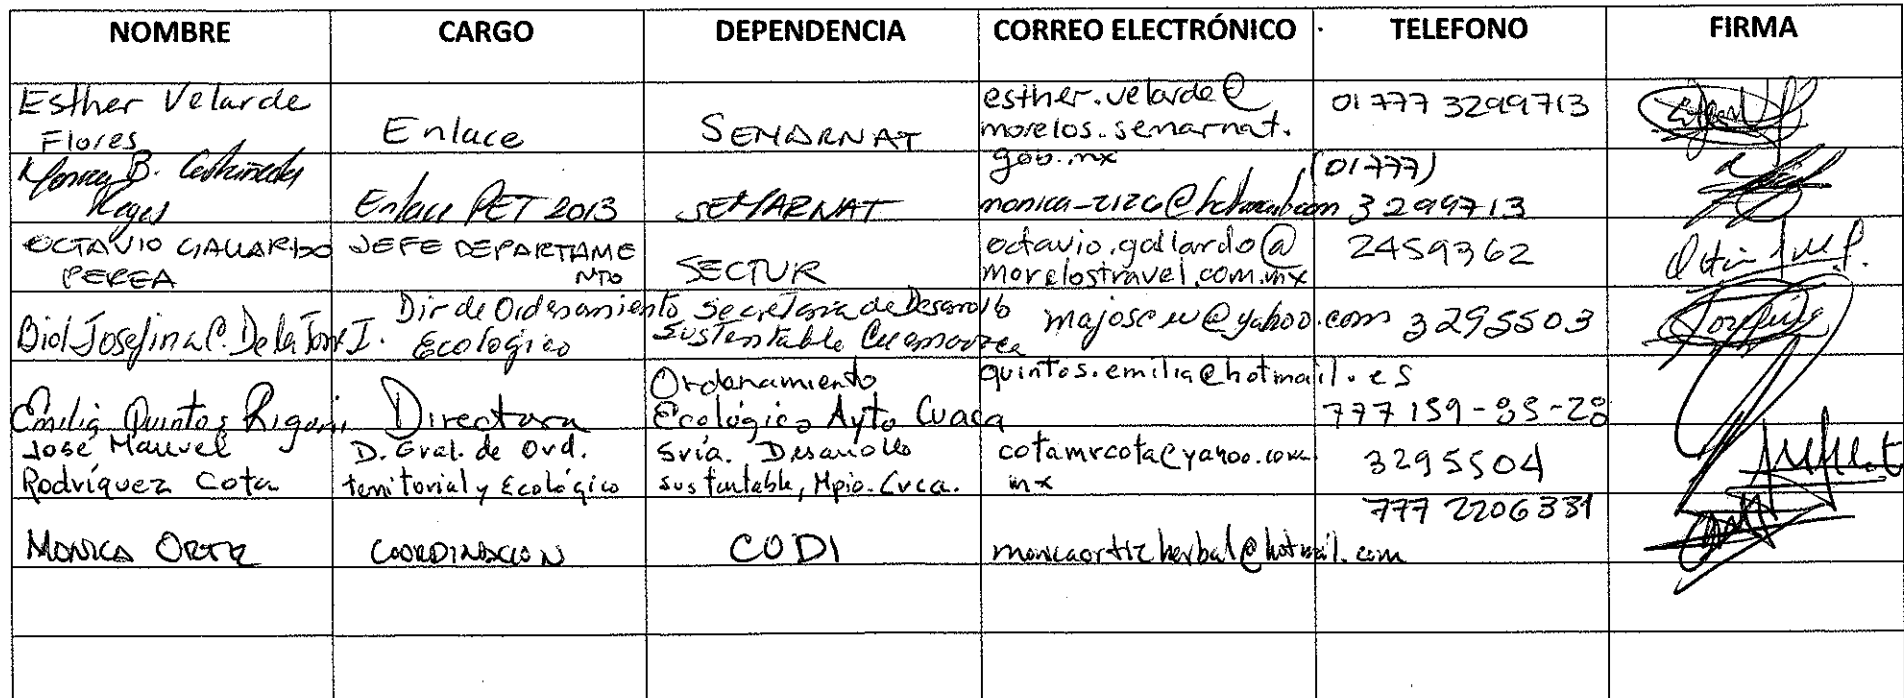 NOMBRE CARGO DEPENDENCIA CORREO ELECTRÓNICO TELEFONO FIRMA
Esther Velarde
Flores
Enlace
SEMARNAT
esther.velarde@
morelos.semarnat.
gob.mx
01 777 3299713
B.
Reyes
Enlace PET 2013
SEMARNAT
monica-2126@hotmail.com
(01777)
3299713
OCTAVIO GALLARDO
PEREA
JEFE DEPARTAME
NTO
SECTUR
octavio.gallardo@
morelostravel.com.mx
2459362
Biol. Josefina C. De la Torre I.
Dir de Ordenamiento
Ecológico
Secretaria de Desarrollo
Sustentable Cuernavaca
@yahoo.com
3295503
Emilia Quintos
Directora
Ordenamiento
Ecológico Ayto Cuaca
quintos.emilia@hotmail.es
777 159-85-28
José Manuel
Rodríguez Cota
D. Gral. de Ord.
territorial y Ecológico
Sria. Desarrollo
sustentable, Mpio. Cvca.
cotamrcota@yahoo.com
mx
3295504
MONICA ORTIZ
COORDINACION
CODI
monicaortizherbal@hotmail.com
777 2206331